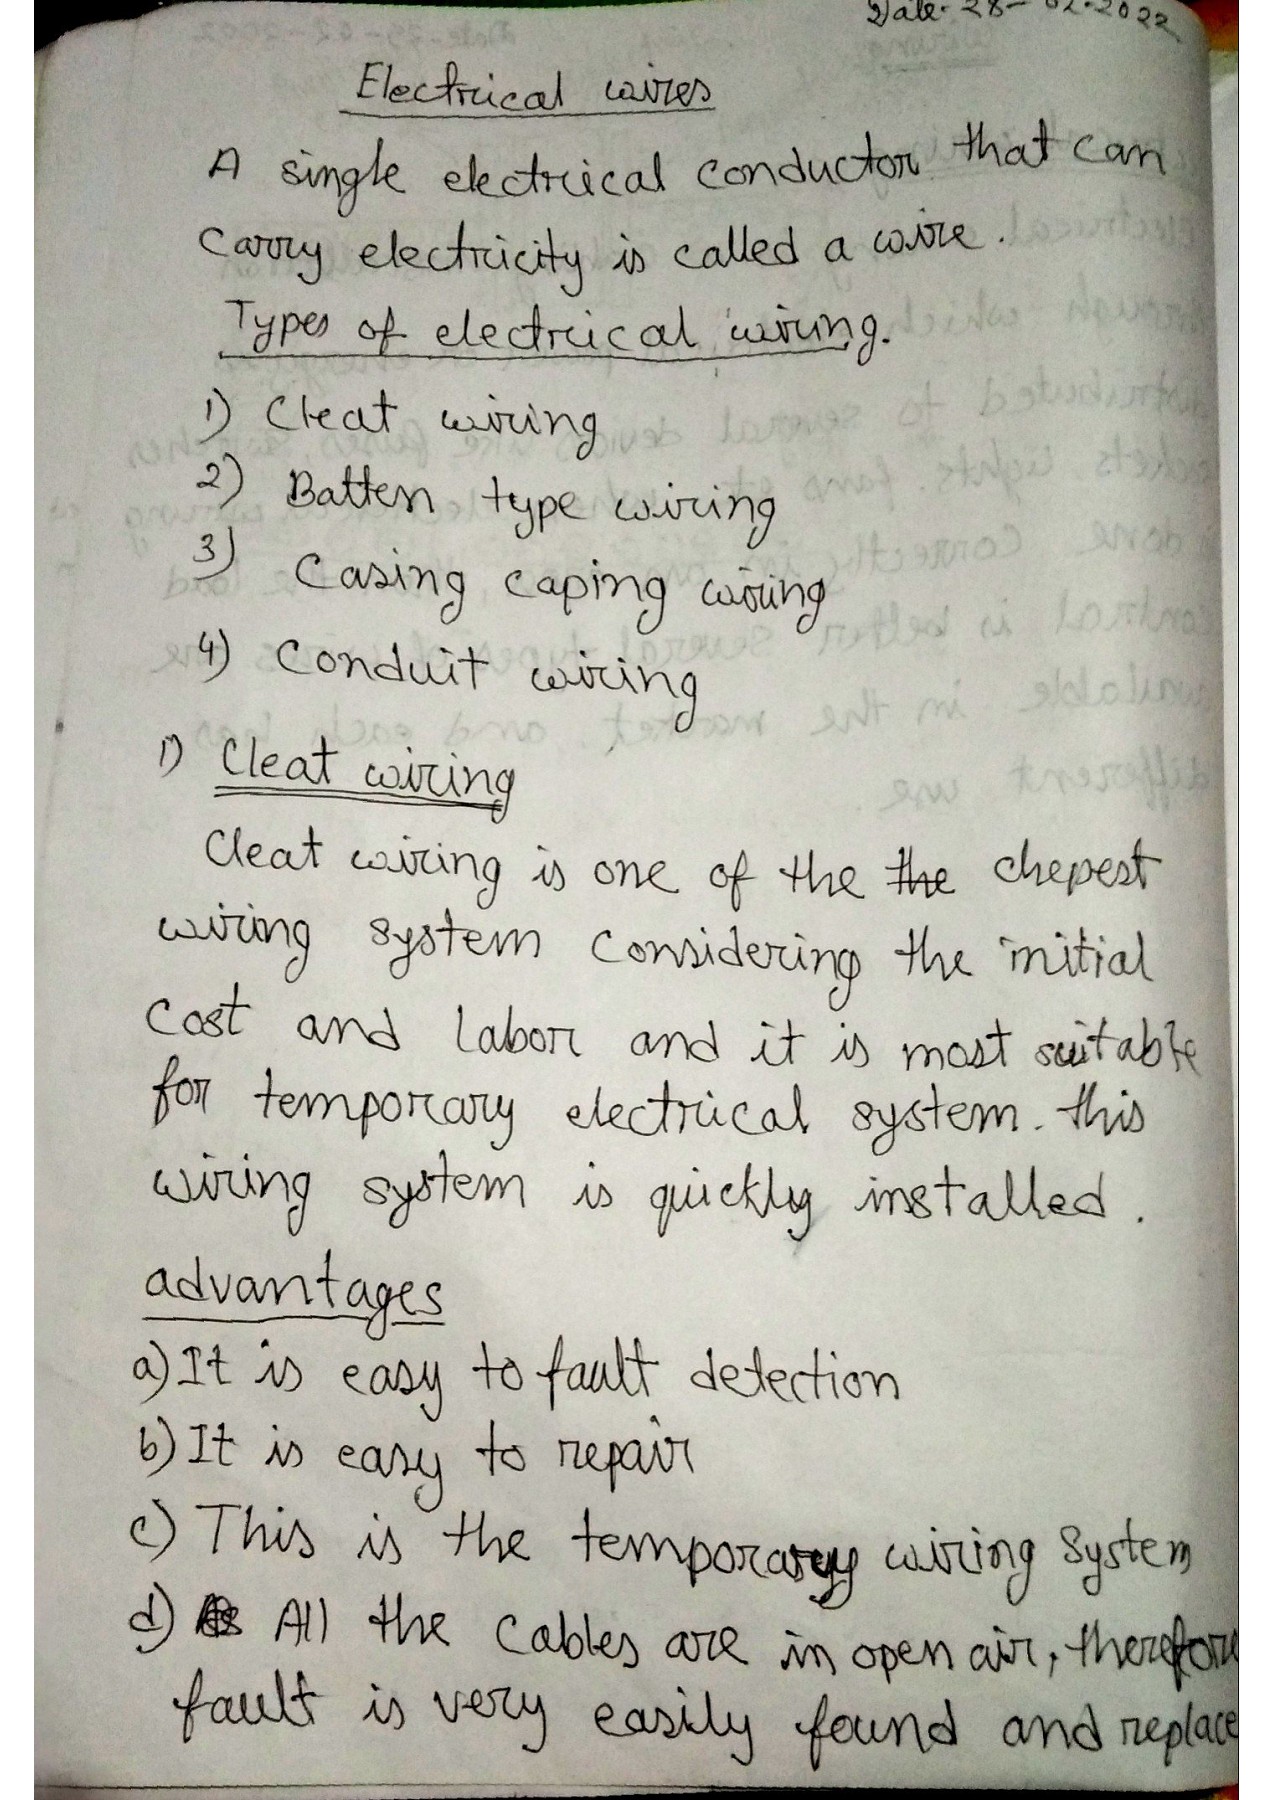 Date- 28-02-2022
Electrical wires
A single electrical conductor that can
carry electricity is called a wire.
Types of electrical wiring.
1) Cleat wiring
2) Batten type wiring
3) Casing caping wiring
4) Conduit wiring
1) Cleat wiring
Cleat wiring is one of the the chepest
wiring system considering the initial
cost and labor and it is most suitable
for temporary electrical system. this
wiring system is quickly installed.
advantages
a) It is easy to fault detection
b) It is easy to repair
c) This is the temporary wiring system
d) All the cables are in open air, therefore
fault is very easily found and replace